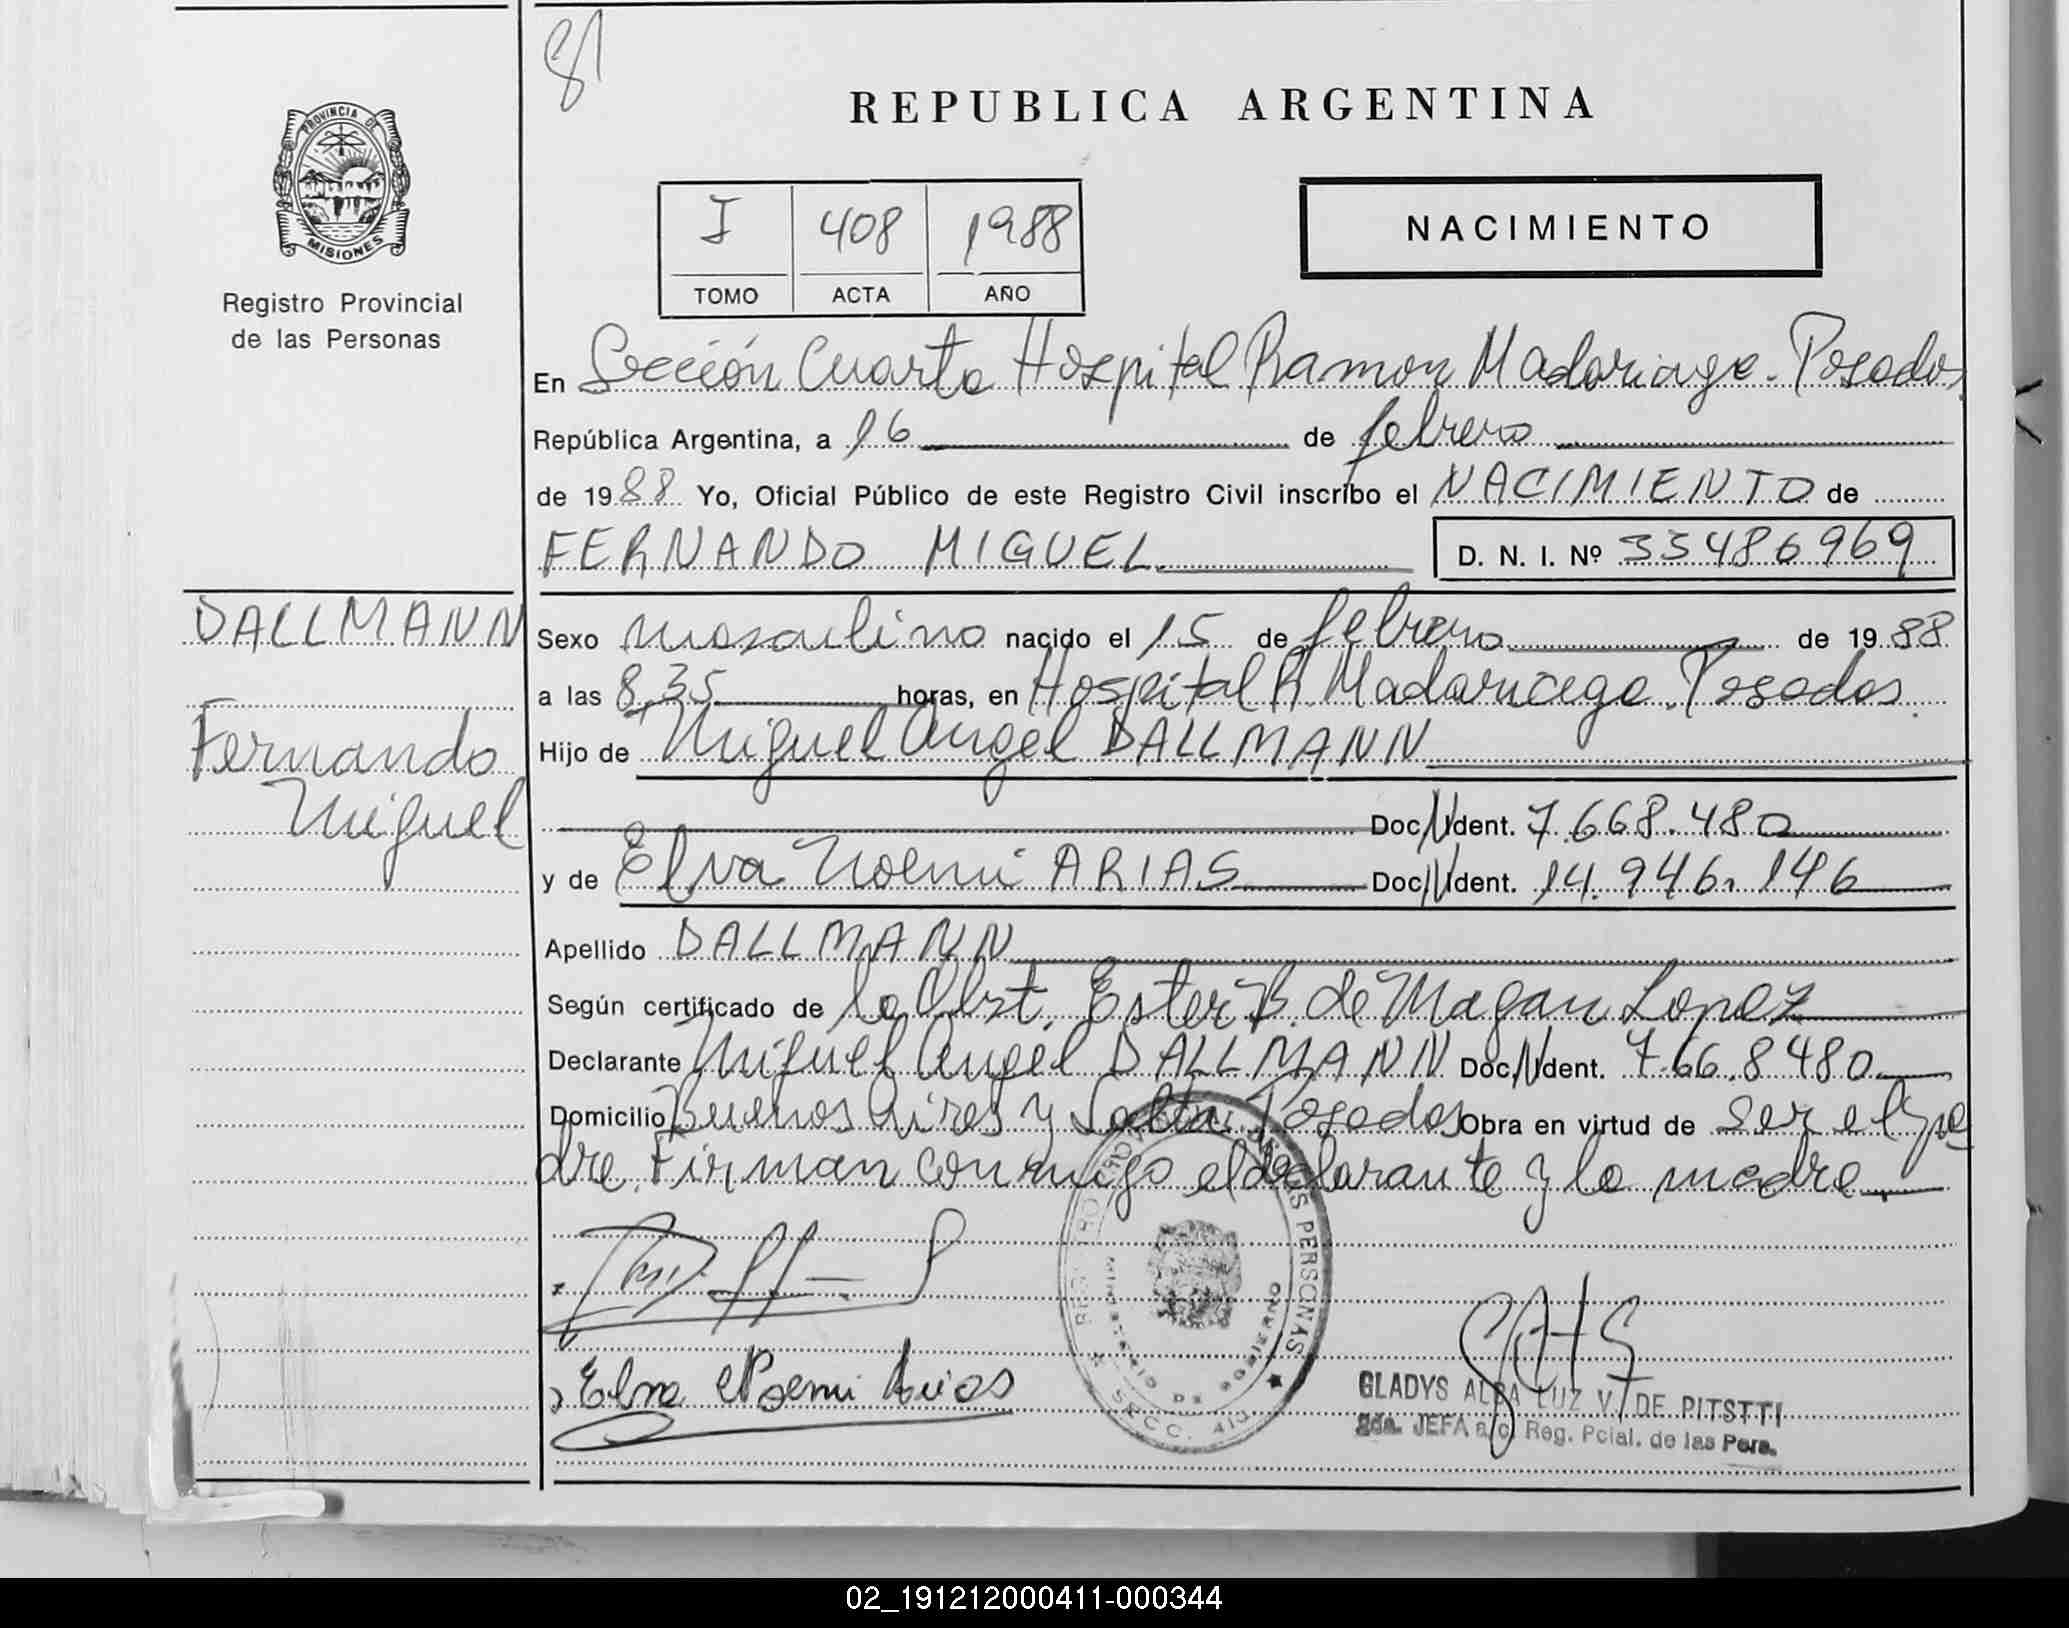 81
REPUBLICA ARGENTINA
PROVINCIA DE
MISIONES
Registro Provincial
de las Personas
I 408 1988
TOMO ACTA AÑO
NACIMIENTO
En Sección Cuarta Hospital Ramon Madariaga. Posadas
República Argentina, a 16 de febrero
de 1988 Yo, Oficial Público de este Registro Civil inscribo el NACIMIENTO de
FERNANDO MIGUEL D. N. I. Nº 33486969
DALLMANN
Fernando
Miguel
Sexo masculino nacido el 15 de febrero de 1988
a las 8,35 horas, en Hospital R. Madariaga. Posadas.
Hijo de Miguel Angel DALLMANN
Doc. Ident. 7.668.480
y de Elva Noemi ARIAS Doc. Ident. 14.946.146
Apellido DALLMANN
Según certificado de la Obst. Ester B. de Magan Lopez
Declarante Miguel Angel DALLMANN Doc. Ident. 7.66.8480
Domicilio Buenos Aires y Salta. Posadas Obra en virtud de ser el pa
dre. Firman conmigo el declarante y la madre.
Elva Noemi Arias
PERSONAS
MINISTERIO DE GOBIERNO
SECC. 4ta
GLADYS ALBA LUZ V. DE PITSTTI
2da. JEFA a/c Reg. Pcial. de las Pers.
02_191212000411-000344